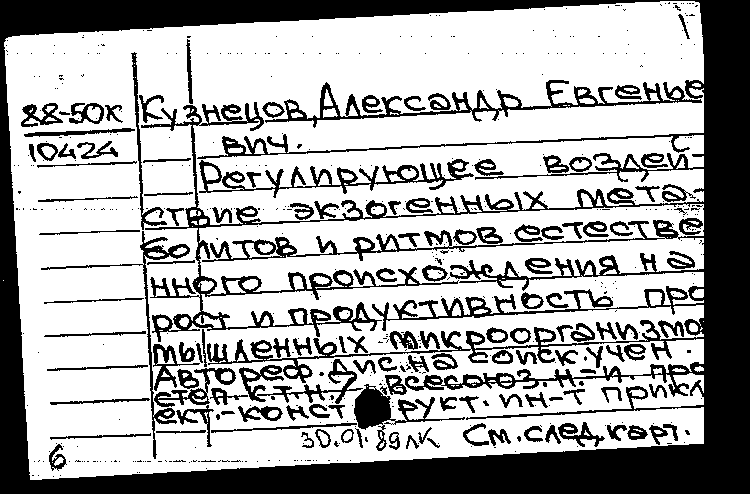 88-50к
10424
Кузнецов, Александр Евгенье
вич.
Регулирующее воздей-
ствие экзогенных мета-
болитов и ритмов естестве
нного происхождения на
рост и продуктивность про
мышленных микроорганизмо
Автореф. дис. на соиск. учен.
степ. к.т.н. / Всесоюз. н.-и. про
ект.-конст рукт. ин-т прикл
30.01.89 ЛК См. след. карт.
6